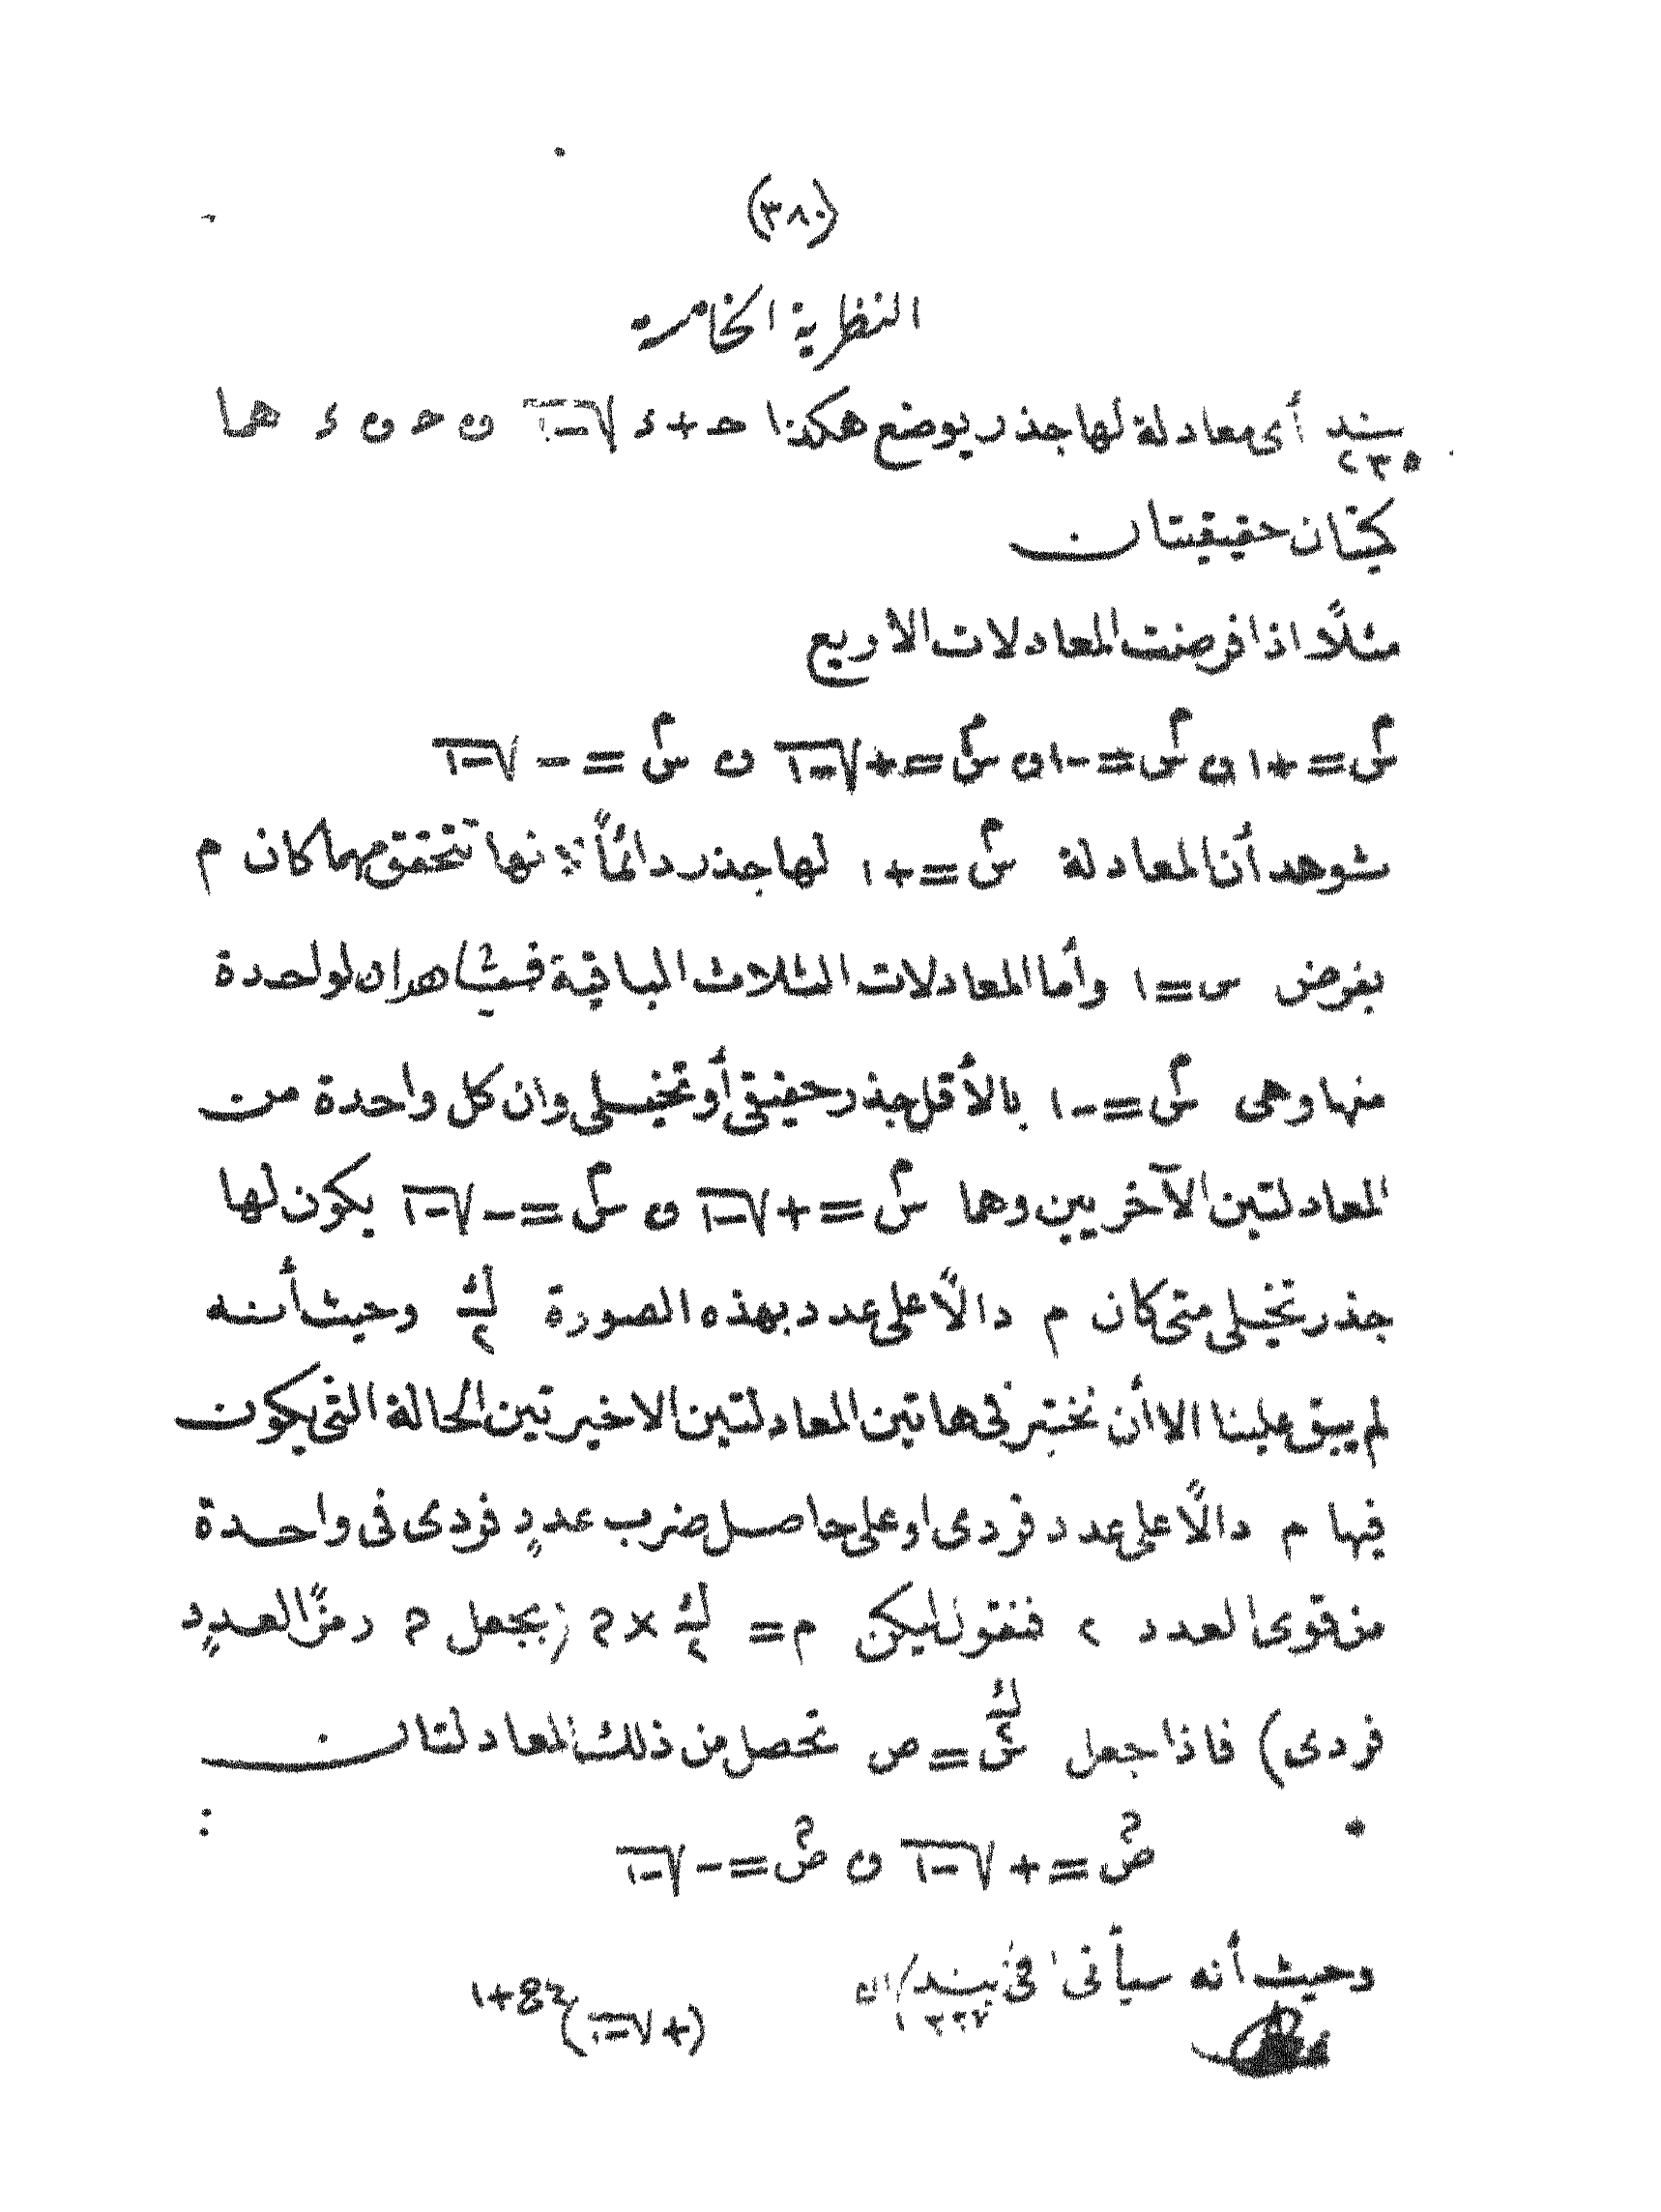 (٣٨٠)
النظرية الخامسة
بند ٢٣٥ أى معادلة لها جذر يوضع هكذا حـ + ء √-١ و حـ و ء هما
كميتان حقيقيتان
مثلًا اذا فرضت المعادلات الأربع
س^م = +١ و س^م = -١ و س^م = +√-١ و س^م = -√-١
شوهد أن المعادلة س^م = +١ لها جذر دائمًا لأنها تتحقق مهما كان م
بفرض س = ١ وأما المعادلات الثلاث الباقية فيشاهد ان لواحدة
منها وهى س^م = -١ بالأقل جذر حقيقى أو تخيلى وان كل واحدة من
المعادلتين الآخريين وهما س^م = +√-١ و س^م = -√-١ يكون لها
جذر تخيلى متى كان م دالًا على عدد بهذه الصورة ٢^ك وحيث أنه
لم يبق علينا الا أن نختبر فى هاتين المعادلتين الاخيرتين الحالة التى يكون
فيها م دالًا على عدد فردى او على حاصل ضرب عددٍ فردى فى واحدة
من قوى العدد ٢ فنقول ليكن م = ٢^ك × م (بجعل م رمزًا لعددٍ
فردى) فاذا جعل س^٢^ك = ص تحصل من ذلك المعادلتان
ص^م = +√-١ و ص^م = -√-١
وحيث أنه سيأتى فى بند ان
(+√-١) ١+